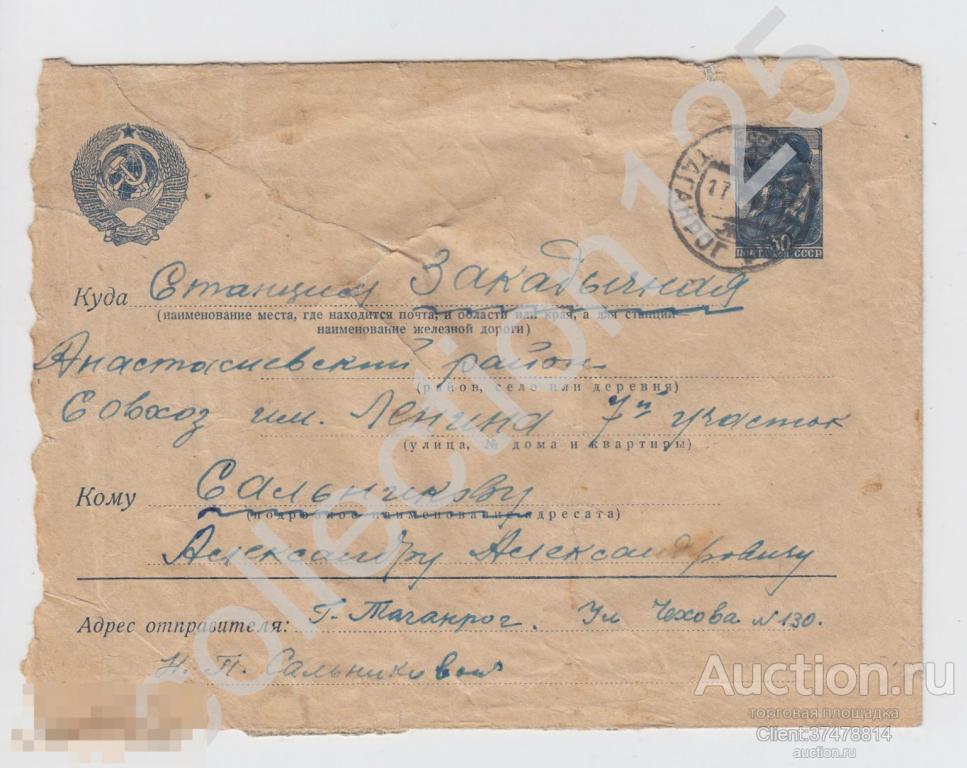 ТАГАНРОГ
17
30
ПОЧТА СССР
Куда Станция Закадычная
(наименование места, где находится почта, и области или края, а для станций—
наименование железной дороги)
Анастасиевский район
(район, село или деревня)
Совхоз им. Ленина 7й участок
(улица, № дома и квартиры)
Кому Сальникову
(подробное наименование адресата)
Александру Александровичу
Адрес отправителя: Г. Таганрог. Ул Чехова N 130.
Н. П. Сальниковой
collection 125
Auction.ru
торговая площадка
Client:37478814
auction.ru